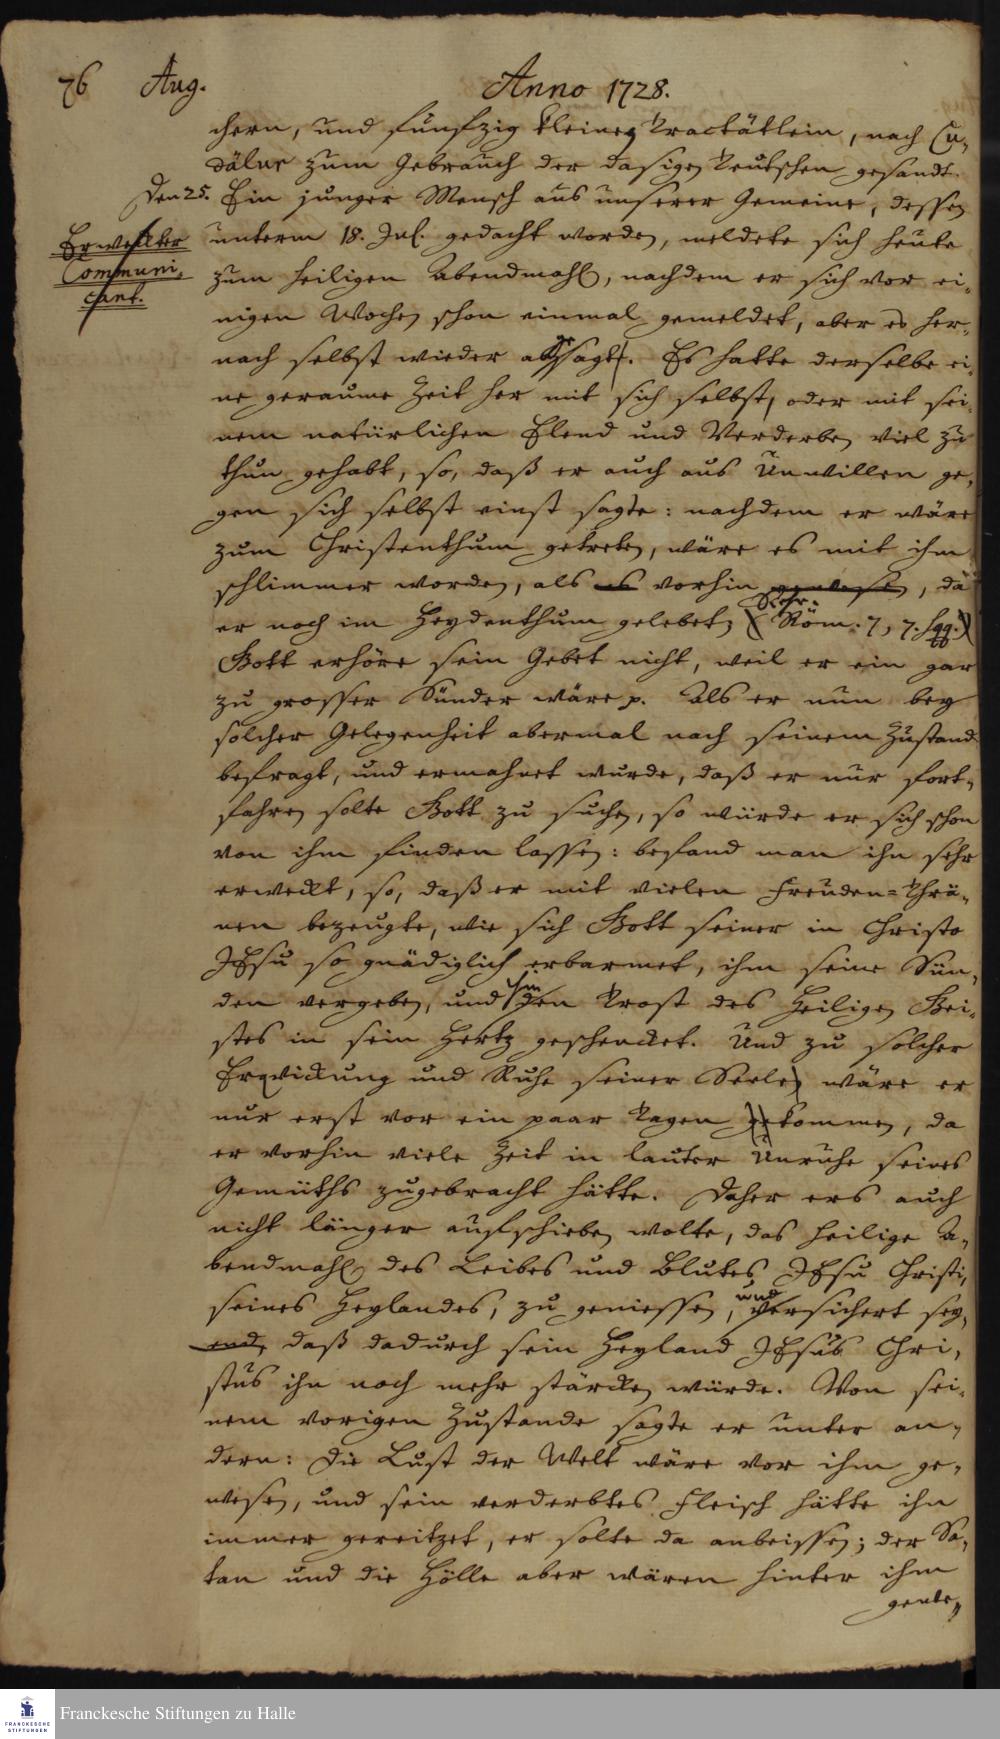 76 Aug. Anno 1728.
chern, und funfzig kleine Tractätlein, nach Cu-
dälur zum Gebrauch der dasigen Teutschen gesandt.
Den 25. Ein junger Mensch aus unserer Gemeine, dessen
Erweckter
Communi-
cant.
unterm 18. Jul. gedacht worden, meldete sich heute
zum heiligen Abendmahl, nachdem er sich vor ei-
nigen Wochen schon einmal gemeldet, aber es her-
nach selbst wieder abgesagt. Es hatte derselbe ei-
ne geraume Zeit her mit sich selbst, oder mit sei-
nem natürlichen Elend und Verderben viel zu
thun gehabt, so, daß er auch aus Unwillen ge-
gen sich selbst einst sagte: nachdem er wäre
zum Christenthum getreten, wäre es mit ihm
schlimmer worden, als es vorhin gewesen, da
er noch im Heydenthum gelebet; (Siehe: Röm. 7, 7. sqq.)
Gott erhöre sein Gebet nicht, weil er ein gar
zu grosser Sünder wäre p. Als er nun bey
solcher Gelegenheit abermal nach seinem Zustand
befragt, und ermahnet wurde, daß er nur fort-
fahren solte Gott zu suchen, so würde er sich schon
von ihm finden lassen: befand man ihn sehr
erweckt, so, daß er mit vielen Freuden=Thrä-
nen bezeugte, wie sich Gott seiner in Christo
JEsu so gnädiglich erbarmet, ihm seine Sün-
den vergeben, und den Trost des Heiligen Gei-
stes in sein Hertz geschencket. Und zu solcher
Erqvickung und Ruhe seiner Seelen wäre er
nur erst vor ein paar Tagen gekommen, da
er vorhin viele Zeit in lauter Unruhe seines
Gemüths zugebracht hätte. Daher ers auch
nicht länger aufschieben wolte, das heilige A-
bendmahl des Leibes und Blutes JEsu Christi,
seines Heylandes, zu geniessen, und versichert sey-
end, daß dadurch sein Heyland JEsus Chri-
stus ihn noch mehr stärcken würde. Von sei-
nem vorigen Zustande sagte er unter an-
dern: Die Lust der Welt wäre vor ihm ge-
wesen, und sein verderbtes Fleisch hätte ihn
immer gereitzet, er solte da anbeissen; der Sa-
tan und die Hölle aber wären hinter ihm
Franckesche Stiftungen zu Halle
FRANCKESCHE
STIFTUNGEN